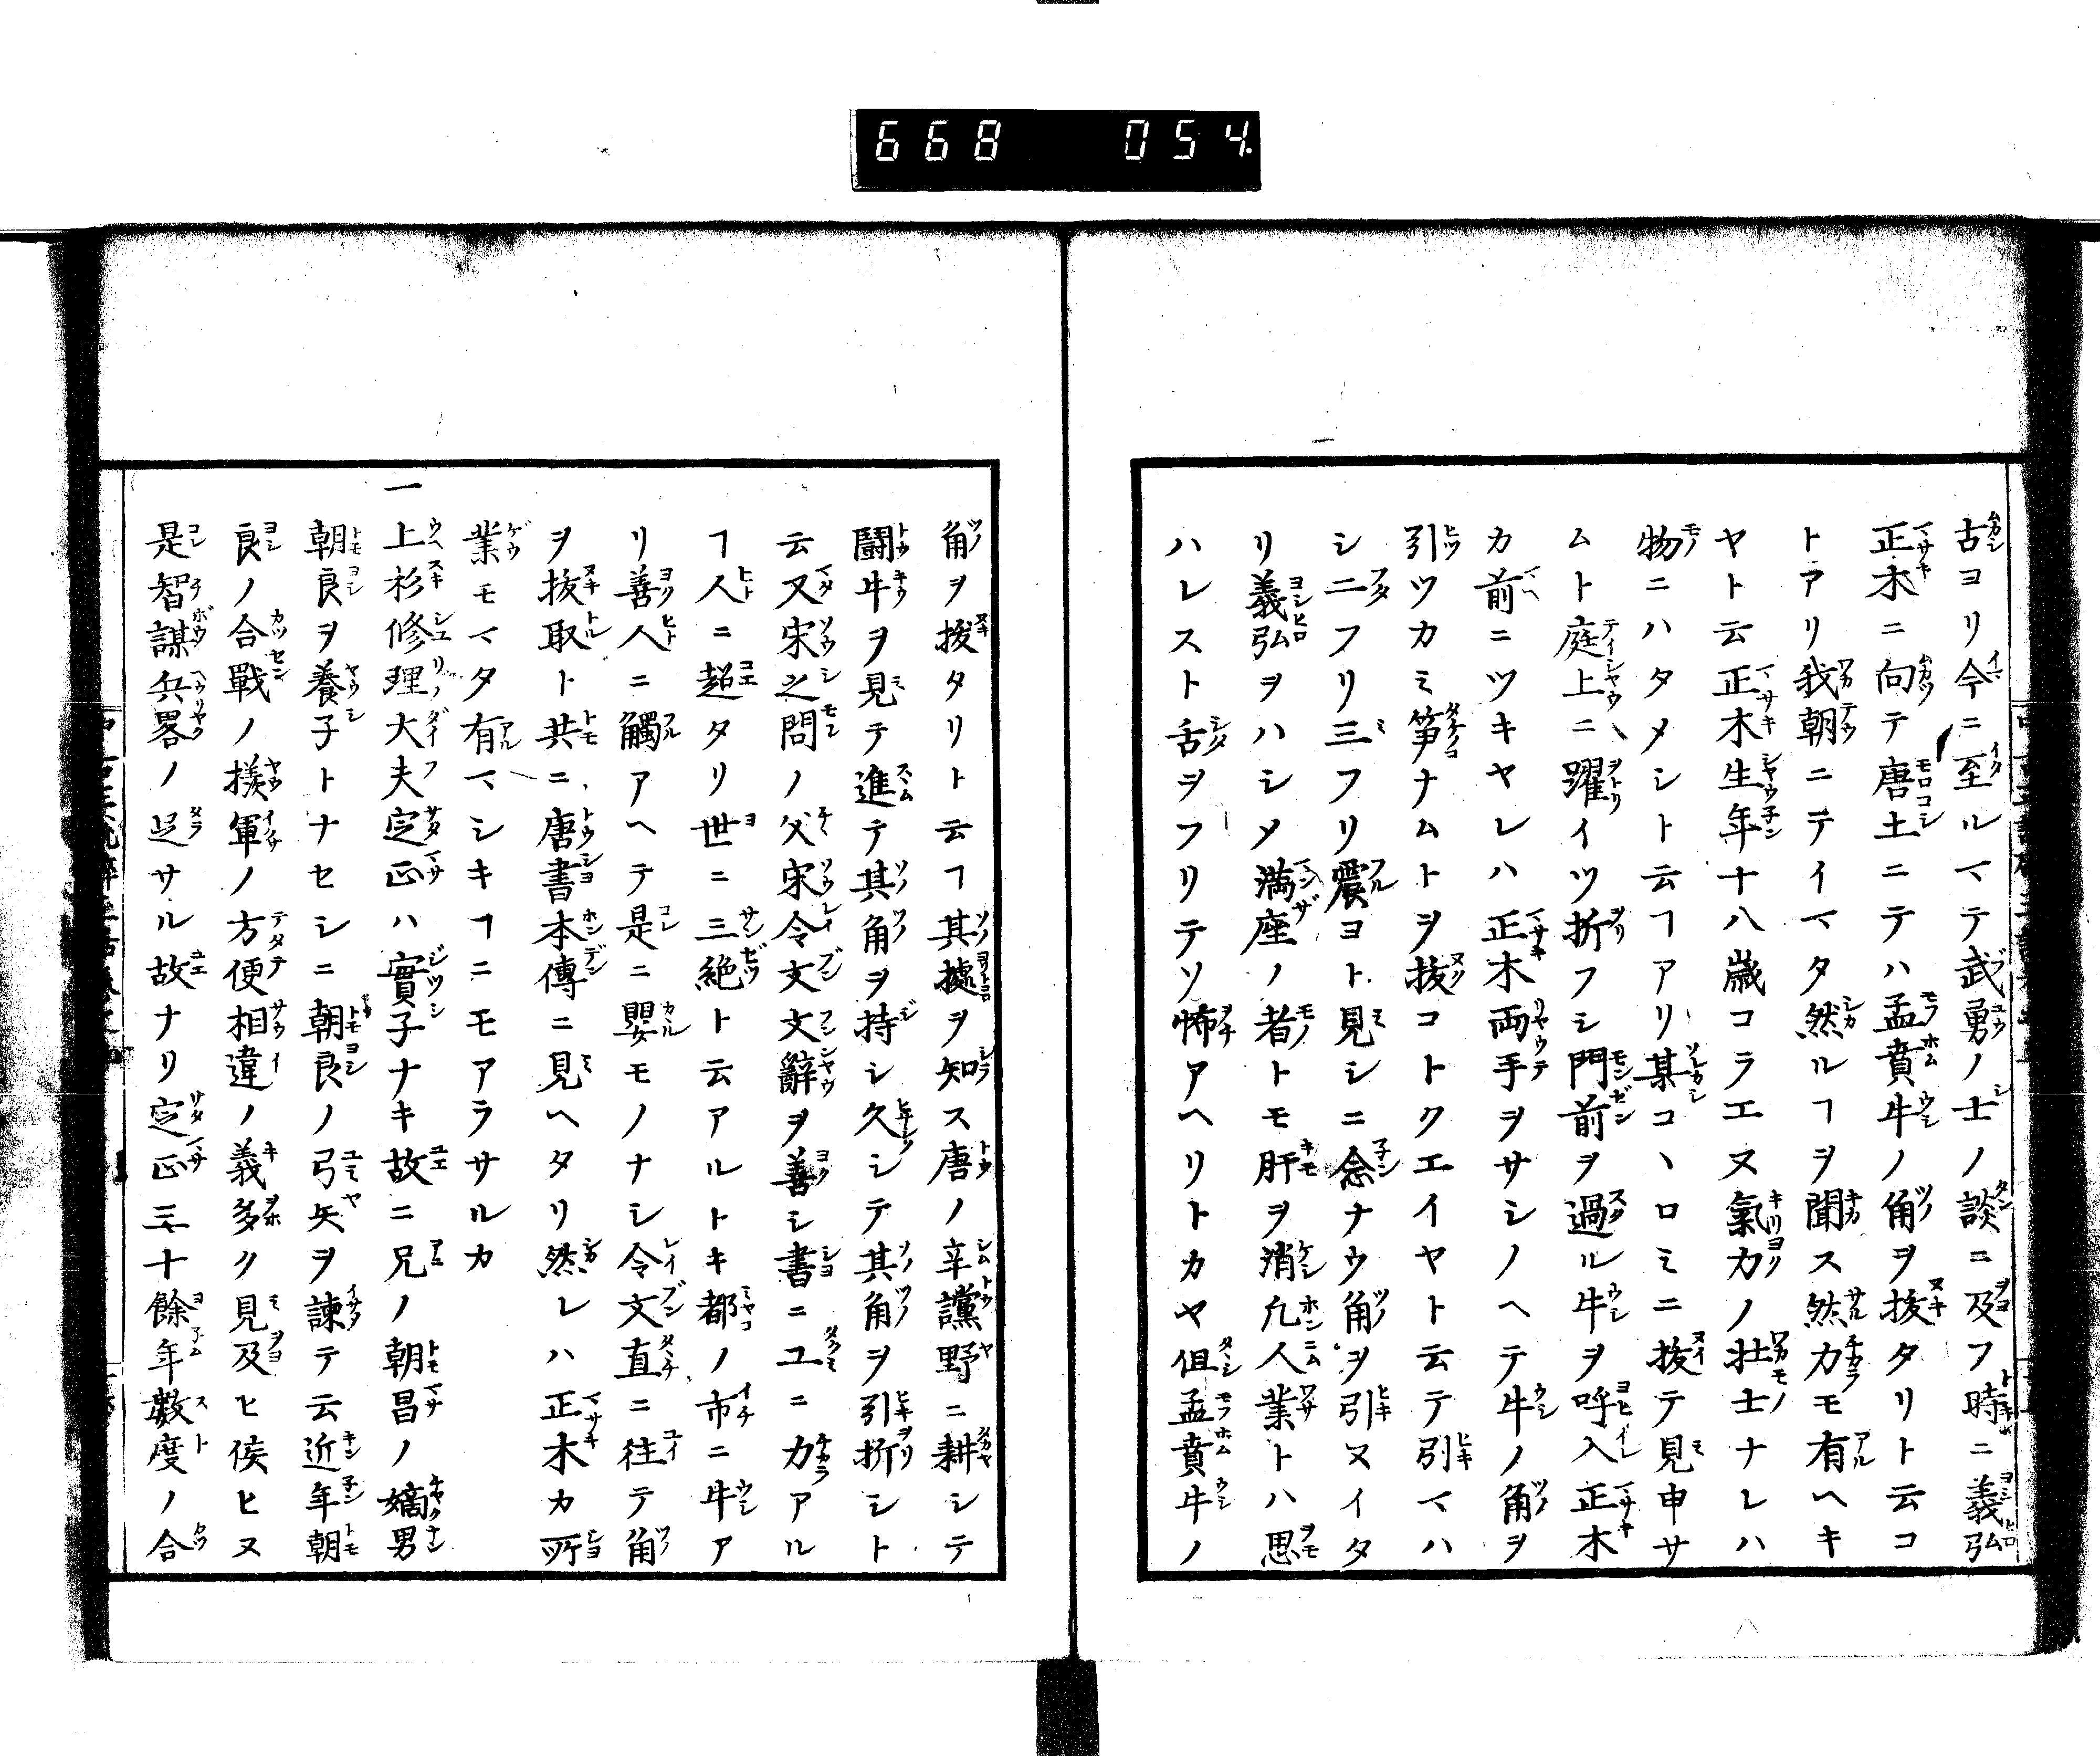 668 054
古ヨリ今ニ至ルマテ武勇ノ士ノ談ニ及フ時ニ義弘
正木ニ向テ唐土ニテハ孟賁牛ノ角ヲ拔タリト云コ
トアリ我朝ニテイマタ然ルヿヲ聞ス然カモ有ヘキ
ヤト云正木生年十八歳コラエヌ氣力ノ壮士ナレハ
物ニハタメシト云ヿアリ某コヽロミニ拔テ見申サ
ムト庭上ニ躍イツ折フシ門前ヲ過ル牛ヲ呼入正木
カ前ニツキヤレハ正木両手ヲサシノヘテ牛ノ角ヲ
引ツカミ笋ナムトヲ拔コトクエイヤト云テ引マハ
シ二フリ三フリ震ヨト見シニ念ナウ角ヲ引ヌイタ
リ義弘ヲハシメ満座ノ者トモ肝ヲ消凢人業トハ思
ハレスト舌ヲフリテソ怖アヘリトカヤ伹孟賁牛ノ
角ヲ拔タリト云ヿ其據ヲ知ス唐ノ辛讜野ニ耕シテ
闘牛ヲ見テ進テ其角ヲ持シ久シテ其角ヲ引折シト
云又宋之問ノ父宋令文文辭ヲ善シ書ニユニ力アル
ヿ人ニ超タリ世ニ三絶ト云アルトキ都ノ市ニ牛ア
リ善人ニ觸アヘテ是ニ嬰モノナシ令文直ニ往テ角
ヲ拔取ト共ニ唐書本傳ニ見ヘタリ然レハ正木カ所
業モマタ有マシキヿニモアラサルカ
一上杉修理大夫定正ハ實子ナキ故ニ兄ノ朝昌ノ嫡男
朝良ヲ養子トナセシニ朝良ノ弓矢ヲ諫テ云近年朝
良ノ合戰ノ様軍ノ方便相違ノ義多ク見及ヒ侯ヒヌ
是智謀兵畧ノ足サル故ナリ定正三十餘年數度ノ合